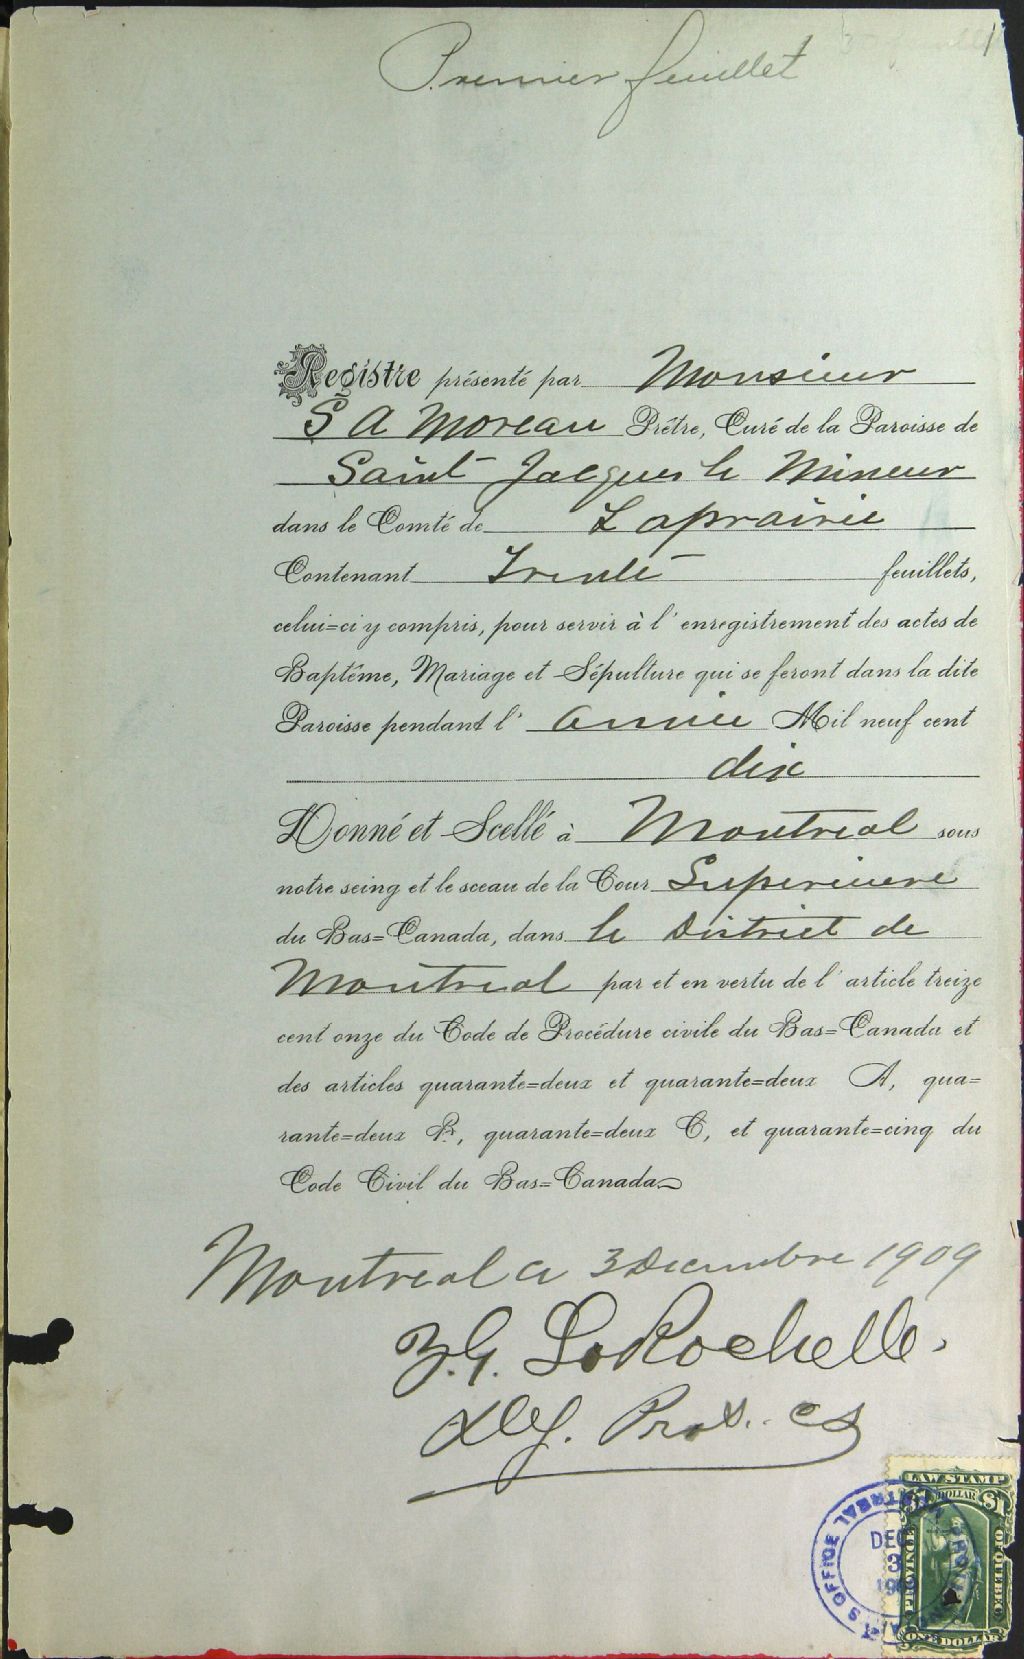 1
Premier feuillet
Registre présenté par Monsieur
S A Moreau Prêtre, Curé de la Paroisse de
Saint Jacques le Mineur
dans le Comté de Laprairie
Contenant Trente feuillets,
celui=ci y compris, pour servir à l'enregistrement des actes de
Baptême, Mariage et Sépulture qui se feront dans la dite
Paroisse pendant l'année Mil neuf cent
dix
Donné et Scellé à Montreal sous
notre seing et le sceau de la Cour Superieure
du Bas=Canada, dans le District de
Montreal par et en vertu de l'article treize
cent onze du Code de Procédure civile du Bas=Canada et
des articles quarante=deux et quarante=deux A, qua=
rante=deux B, quarante=deux C, et quarante=cinq du
Code Civil du Bas=Canada
Montreal a 3 Decembre 1909
LaRochelle.
Dep. Prot. CS
LAW STAMP
$1 DOLLAR $1
PROVINCE OF QUEBEC
ONE DOLLAR
S OFFICE MONTREAL
DEC
3